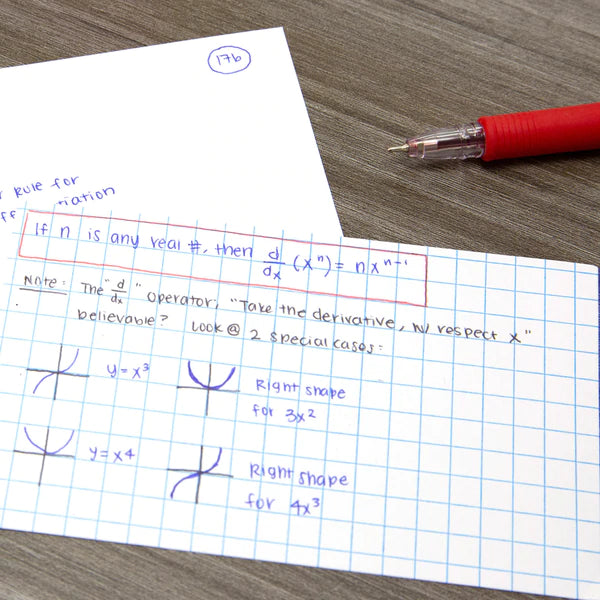 176
Rule for
iation
If n is any real #, then d/dx (xⁿ) = nxⁿ⁻¹
Note: The "d/dx" operator; "Take the derivative, w/ respect x"
believable? Look @ 2 special cases:
y = x³
Right shape
for 3x²
y = x4
Right shape
for 4x³